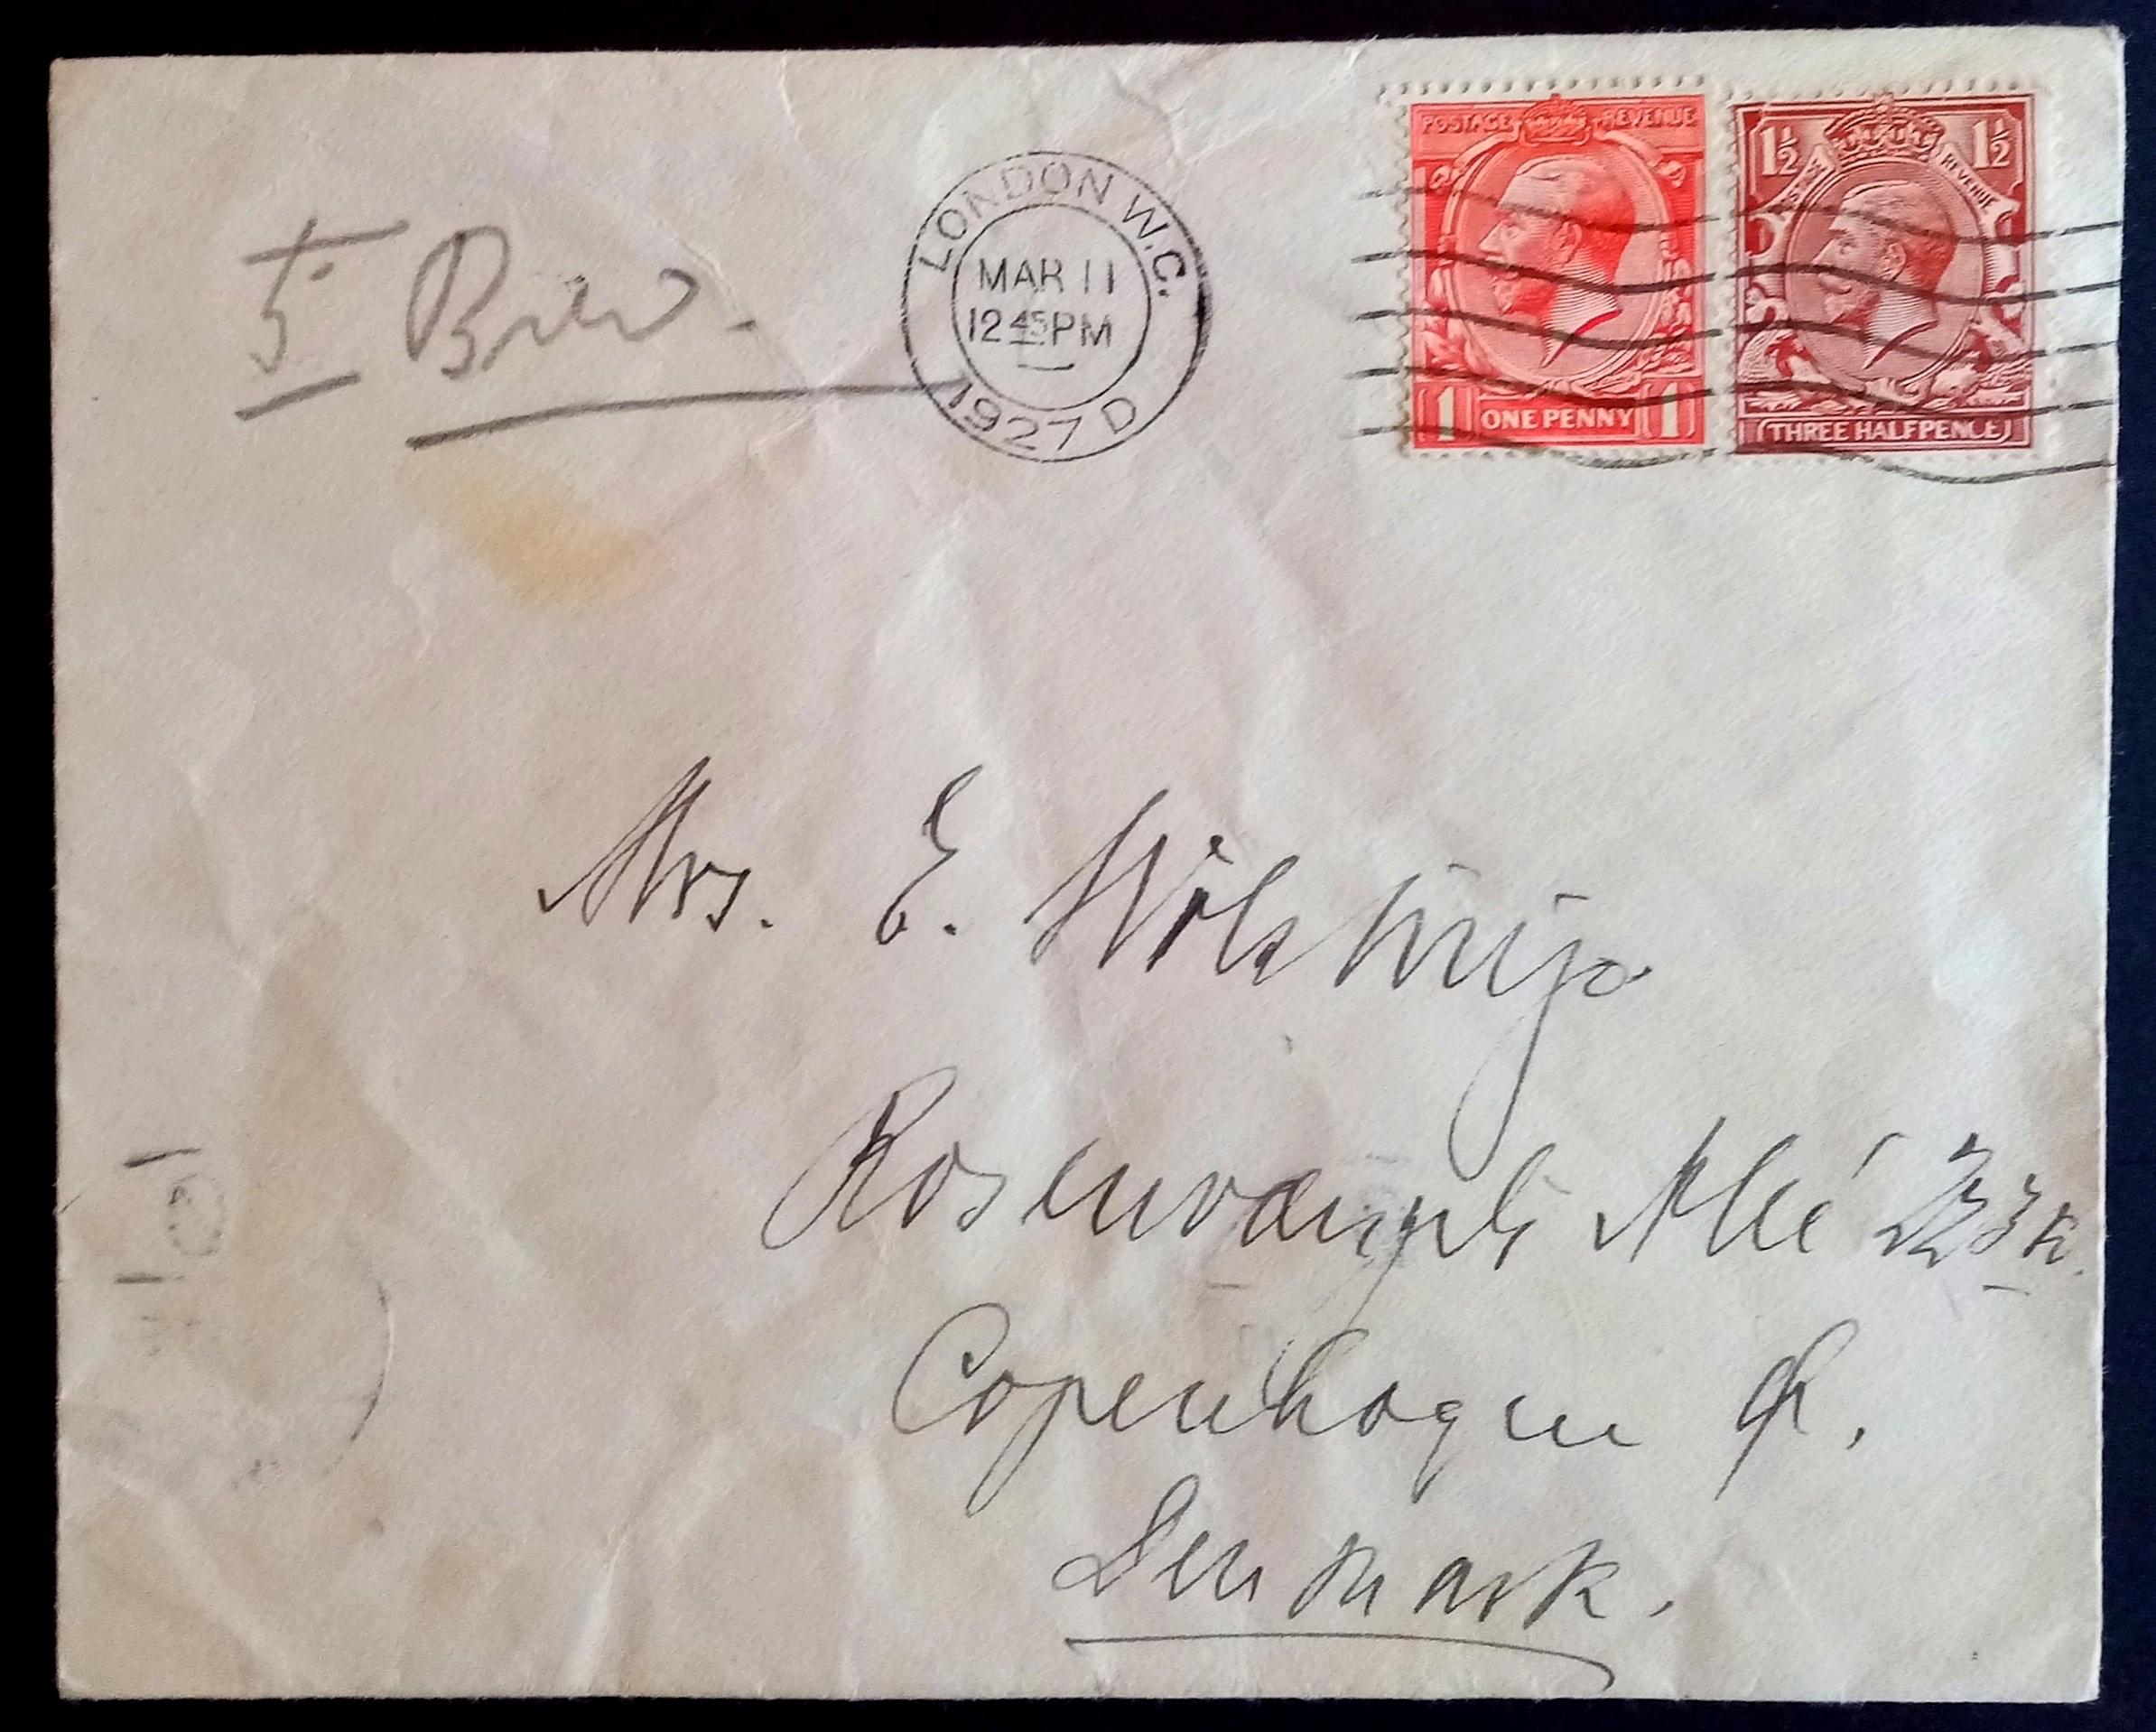 5. Brev.
LONDON W.C.
MAR 11
12 45 PM
1927 D
POSTAGE REVENUE
1 ONE PENNY 1
1½ 1½
POSTAGE REVENUE
THREE HALFPENCE
Mrs. E.
Rosenvængets Allé
Copenhagen Ø.
Denmark.